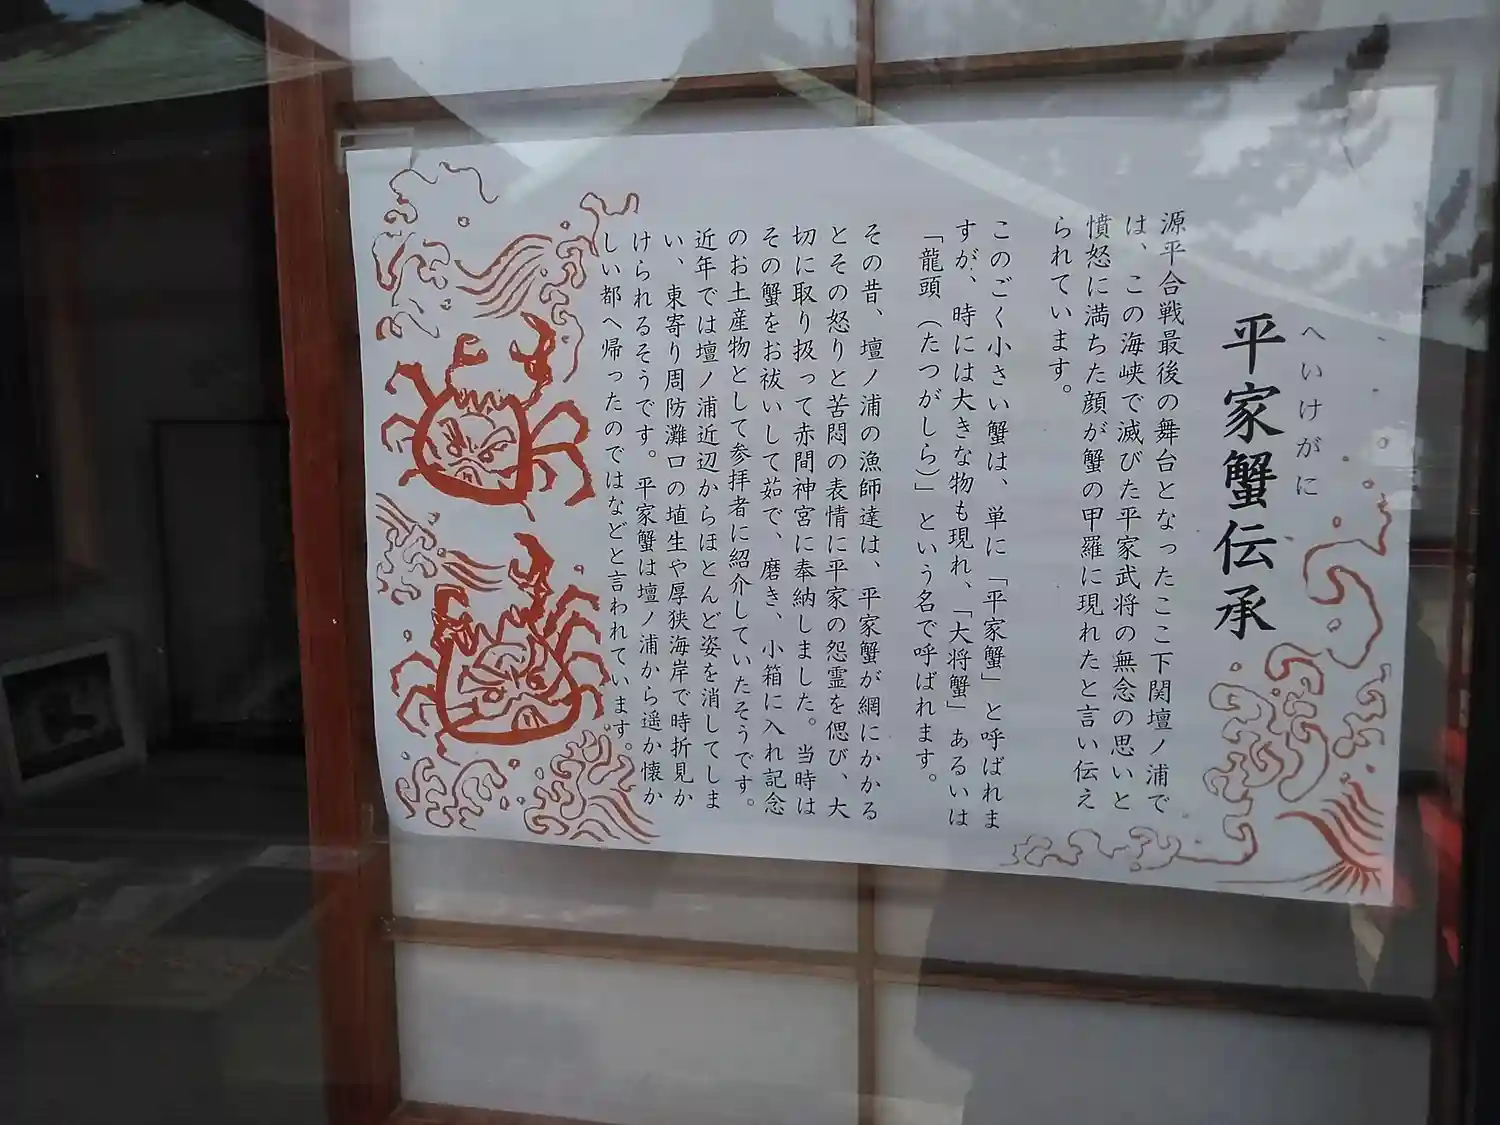 へいけがに
平家蟹伝承
源平合戦最後の舞台となったここ下関壇ノ浦で
は、この海峡で滅びた平家武将の無念の思いと
憤怒に満ちた顔が蟹の甲羅に現れたと言い伝え
られています。
このごく小さい蟹は、単に「平家蟹」と呼ばれま
すが、時には大きな物も現れ、「大将蟹」あるいは
「龍頭（たつがしら）」という名で呼ばれます。
その昔、壇ノ浦の漁師達は、平家蟹が網にかかる
とその怒りと苦悶の表情に平家の怨霊を偲び、大
切に取り扱って赤間神宮に奉納しました。当時は
その蟹をお祓いして茹で、磨き、小箱に入れ記念
のお土産物として参拝者に紹介していたそうです。
近年では壇ノ浦近辺からほとんど姿を消してしま
い、東寄り周防灘口の埴生や厚狭海岸で時折見か
けられるそうです。平家蟹は壇ノ浦から遥か懐か
しい都へ帰ったのではなどと言われています。